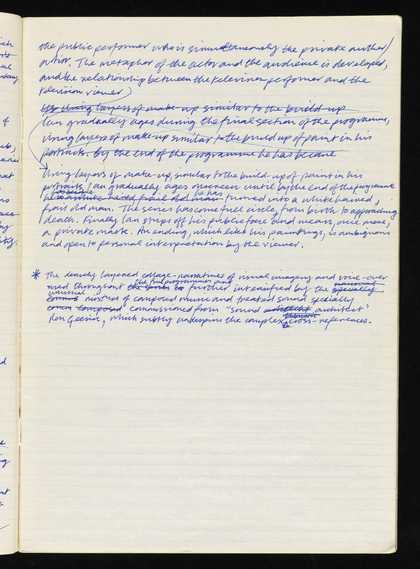 the public performer who is simultaneously the private author/
actor. The metaphor of the actor and the audience is developed,
and the relationship between the television performer and the
television viewer.)
Using layers of make-up similar to the build-up
Ian gradually ages during the final section of the programme,
Using layers of make up similar to the build up of paint in his
portraits. By the end of the programme he has became
Using layers of make-up, similar to the build-up of paint in his
portraits, Ian gradually ages onscreen until by the end of the programme
he has turned into a white haired,
frail old man. The series has come full circle, from birth to approaching
death. Finally Ian strips off his public face and wears, once more,
a private mask. An ending, which like his paintings, is ambiguous
and open to personal interpretation by the viewer.
* The densely layered collage-narratives of visual imagery and voice-over
used throughout the programmes are further intensified by the
unusual mixture of composed music and treated sound specially
commissioned from "sound architect"
Ron Geesin, which subtly underpins the complex cross-references.